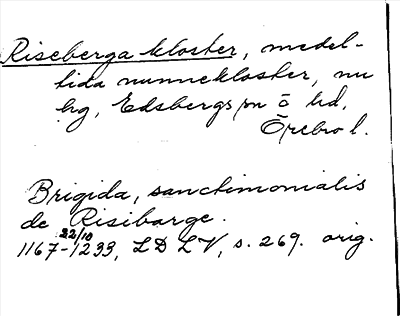 Riseberga kloster, medel-
tida nunnekloster, nu
hg, Edsbergs sn o hd,
Örebro l.
Brigida, sanctimonialis
de Risibarge.
22/10
1167-1233, LD LV, s. 269. orig.